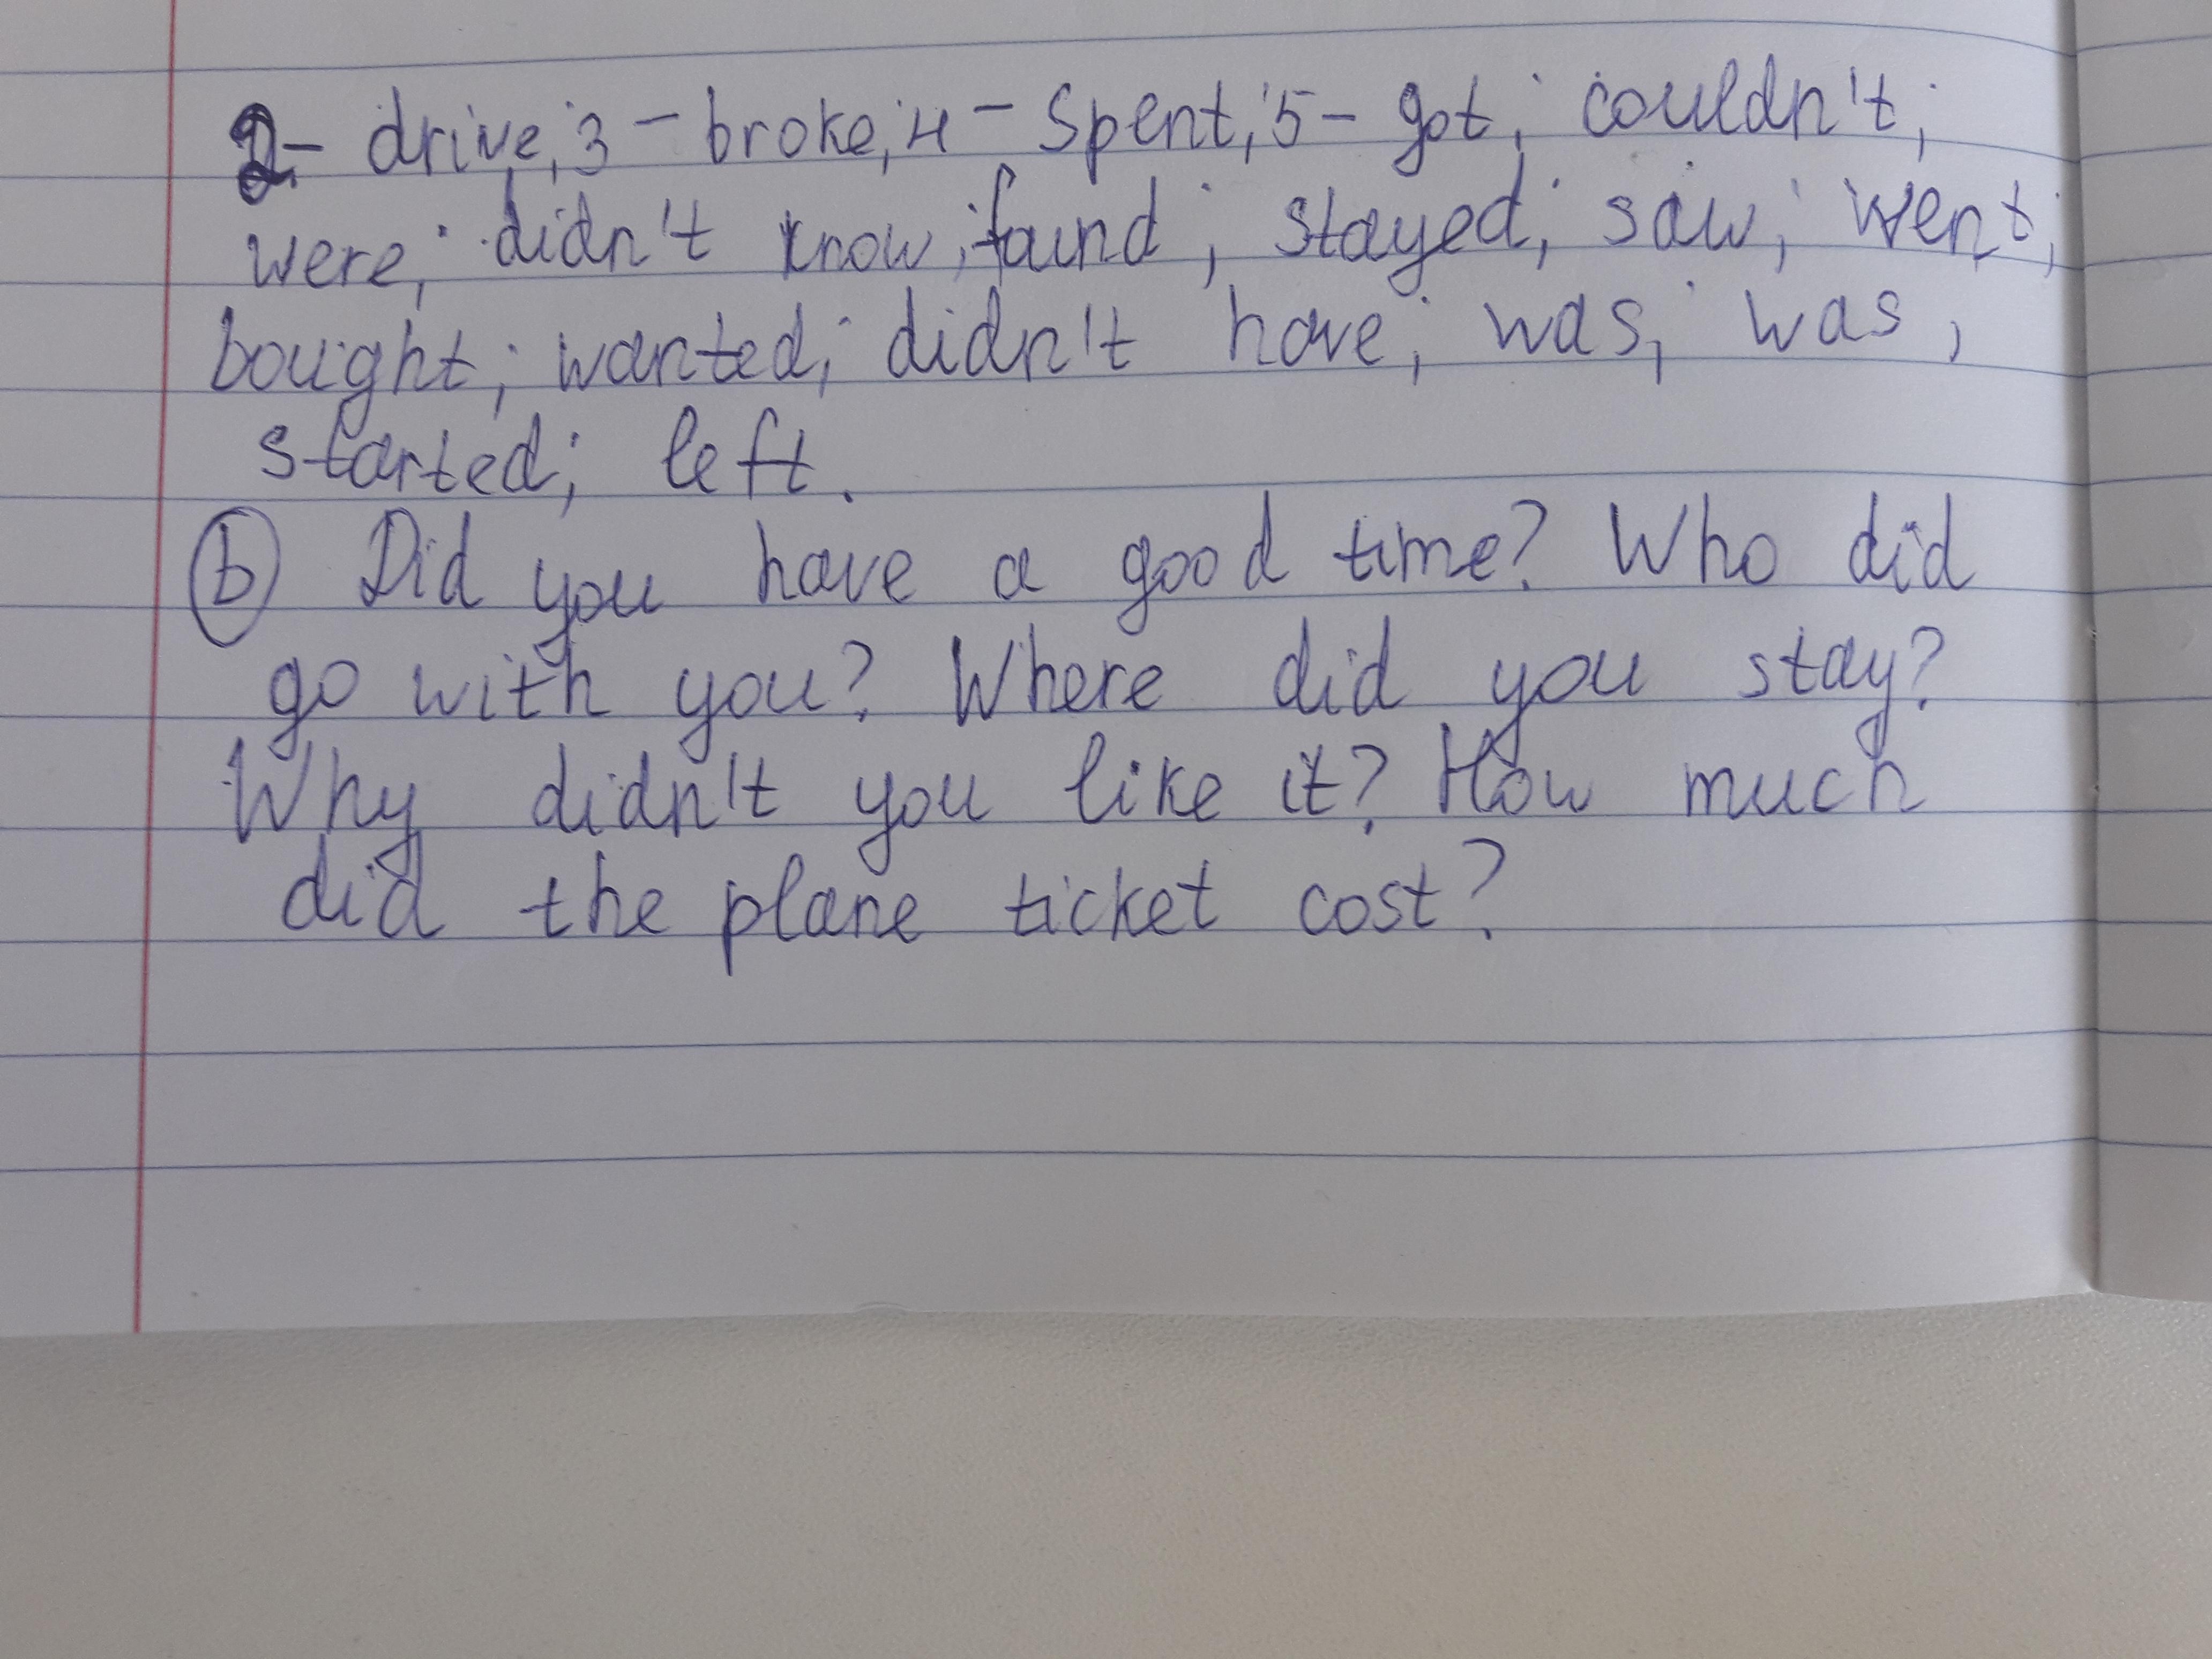 2- drive; 3 - broke; 4 - spent; 5 - got; couldn't;
were; didn't know; faund; stayed; saw; went;
bought; wanted; didn't have; was; was,
started; left.
b Did you have a good time? Who did
go with you? Where did you stay?
Why didn't you like it? How much
did the plane ticket cost?